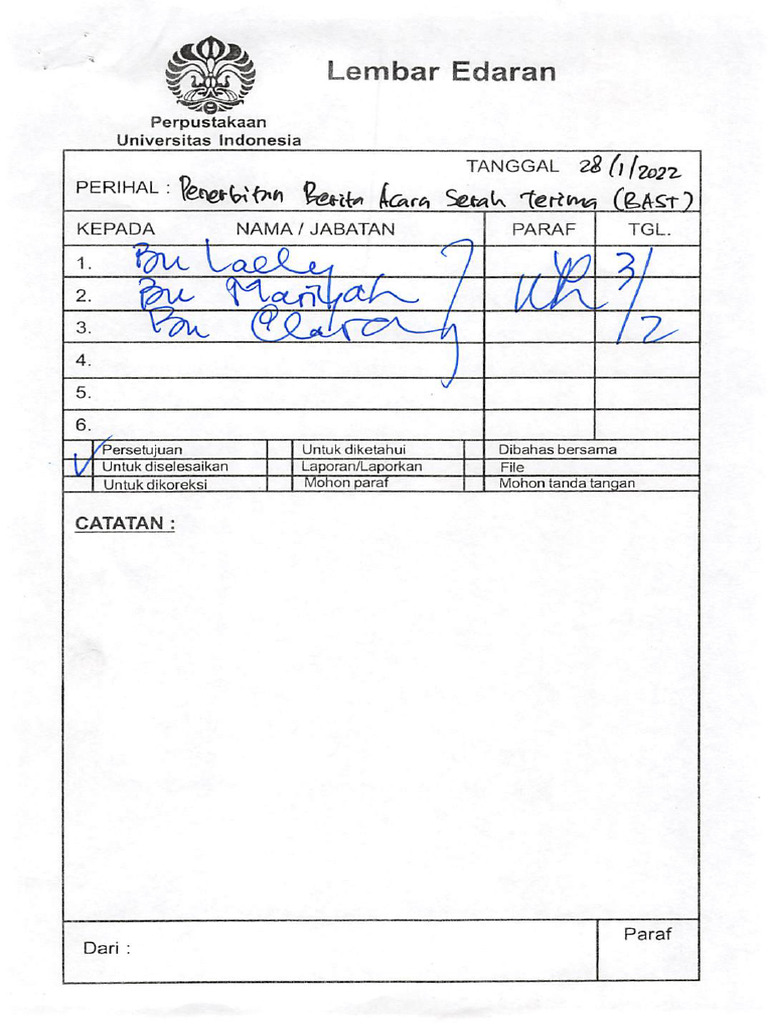 Lembar Edaran
Perpustakaan
Universitas Indonesia
TANGGAL 28/1/2022
PERIHAL : Penerbitan Berita Acara Serah Terima (BAST)
KEPADA NAMA / JABATAN PARAF TGL.
1. Bu Laely 3/2
2. Bu Mariyah
3. Bu Clara
4.
5.
6.
Persetujuan Untuk diketahui Dibahas bersama
Untuk diselesaikan Laporan/Laporkan File
Untuk dikoreksi Mohon paraf Mohon tanda tangan
CATATAN :
Dari : Paraf